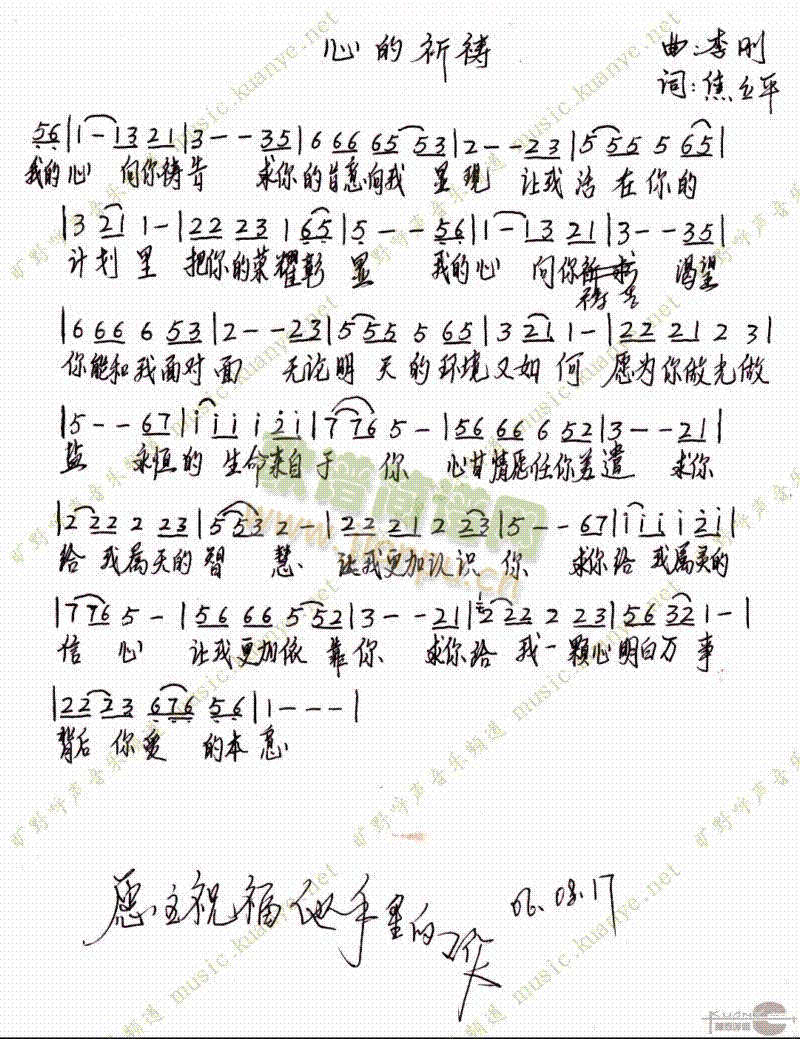 心的祈祷
曲:李刚
词:焦立平
56|1-13 21|3--35|6 66 65 53|2--23|5 55 5 65|
我的心 向你祷告 求你的旨意向我 显现 让我活在你的
|3 21 1-|22 23 1 65|5--56|1-13 21|3--35|
计划里 把你的荣耀彰显 我的心 向你 渴望
祷告
|6 66 6 53|2--23|5 55 5 65|3 21 1-|22 21 2 3|
你能和我面对面 无论明天的环境又如何 愿为你做光做
|5--67|i i i i 2i|7 76 5-|56 66 6 52|3--21|
盐 永恒的生命来自于你 心甘情愿任你差遣 求你
|2 22 2 23|5 53 2-|22 21 2 23|5--67|i i i i 2i|
给我属天的智慧 让我更加认识你 求你给我属灵的
|7 76 5-|56 66 5 52|3--21|2 22 2 23|56 32 1-|
信心 让我更加依靠你 求你给我一颗心明白万事
|22 23 676 56|1---|
背后你爱的本意
愿主祝福他手里的 06.08.17
歌谱简谱网
www.jianpu.cn
旷野呼声音乐频道 music.kuanye.net
KUANYE